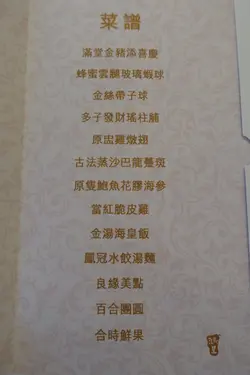 菜譜
滿堂金豬添喜慶
蜂蜜雲腿玻璃蝦球
金絲帶子球
多子發財瑤柱脯
原盅雞燉翅
古法蒸沙巴龍躉斑
原隻鮑魚花膠海參
當紅脆皮雞
金湯海皇飯
鳳冠水餃湯麵
良緣美點
百合團圓
合時鮮果